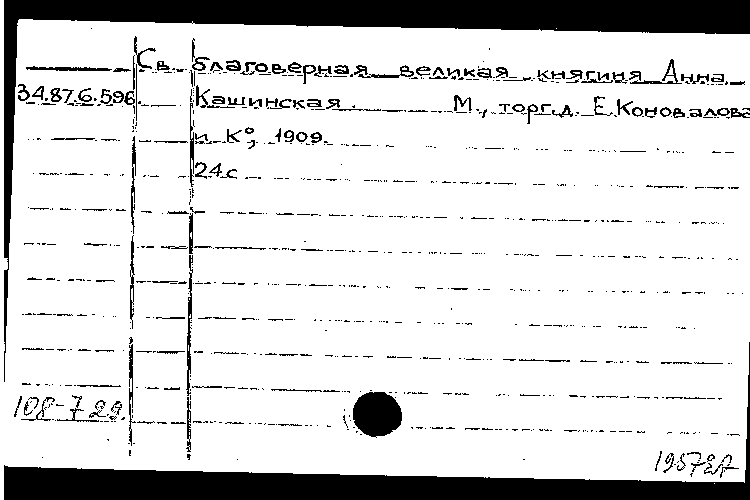 Св. благоверная великая княгиня Анна
34.87.6.596. Кашинская. М., торг.д. Е.Коновалова
и К°, 1909.
24с
108-7 22.